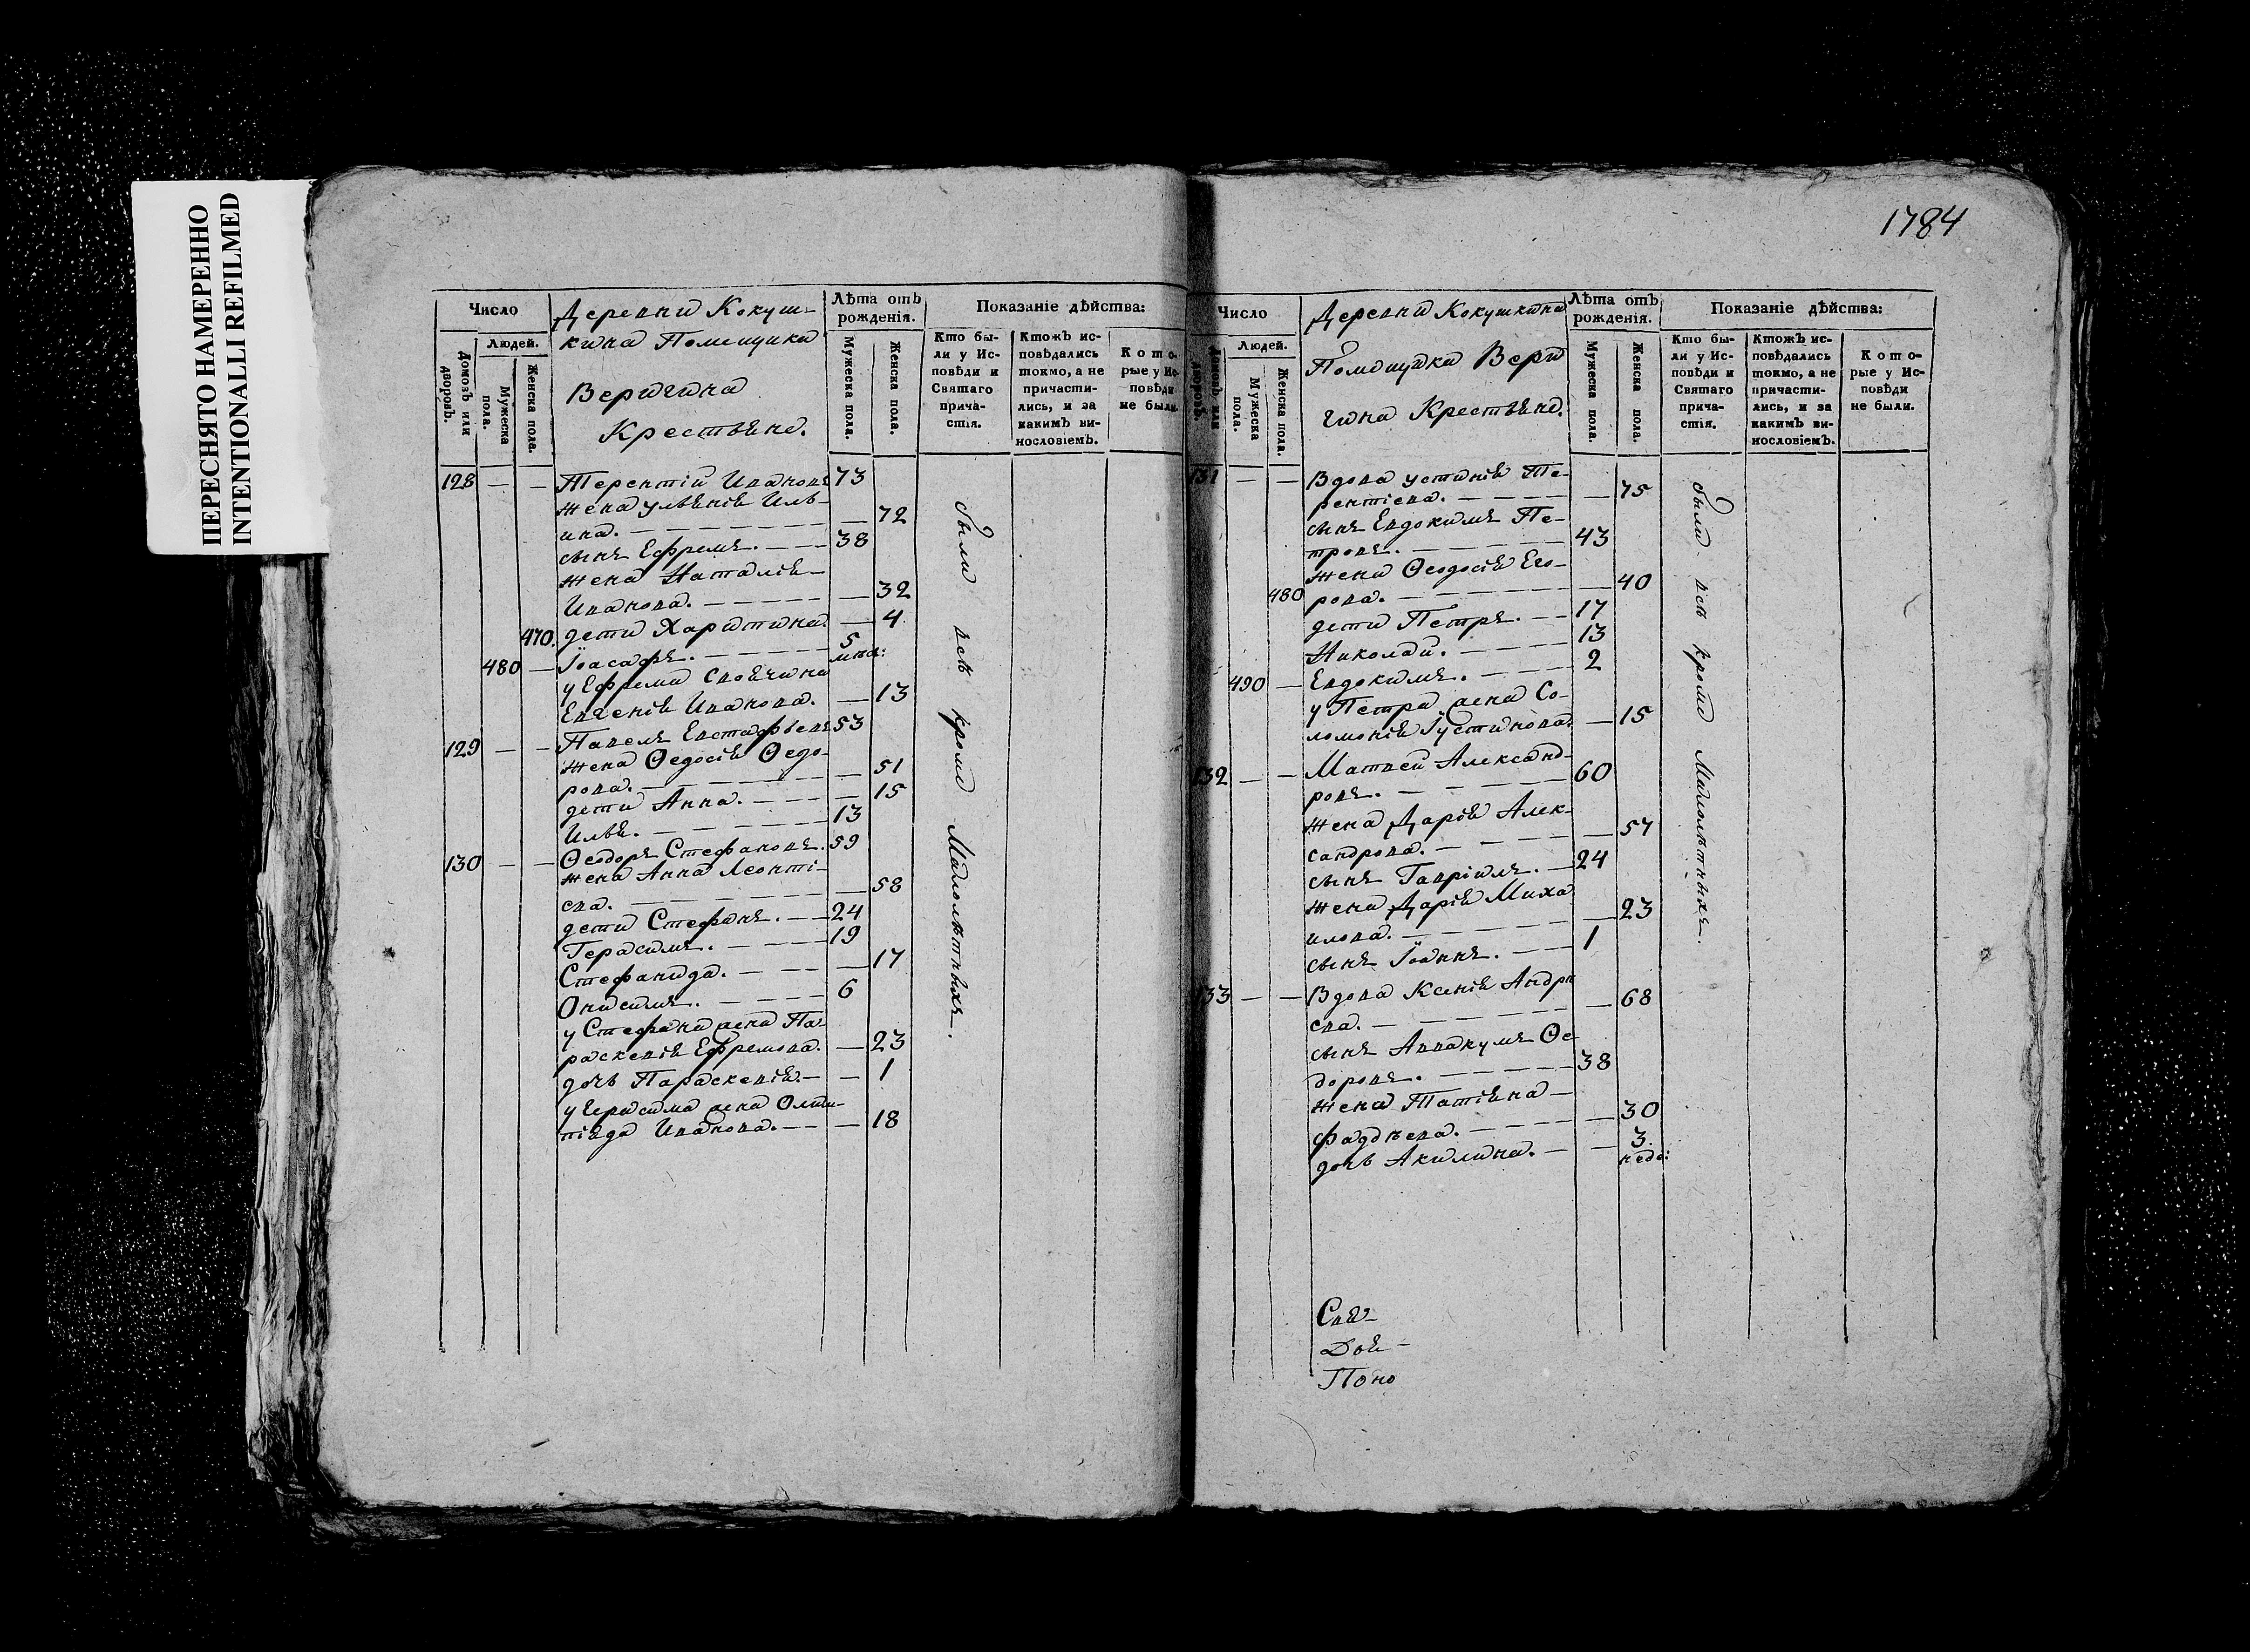 ПЕРЕСНЯТО НАМЕРЕННО
INTENTIONALLI REFILMED
1784
Число
Людей.
Домовъ или дворовъ.
Мужеска пола.
Женска пола.
Деревни Кокуш-
кина Помещика
Веригина
Крестьяне.
Лѣта отъ
рожденія.
Мужеска пола.
Женска пола.
Показаніе дѣйства:
Кто бы-
ли у Ис-
повѣди и
Святаго
прича-
стія.
Ктожъ ис-
повѣдались
токмо, а не
причасти-
лись, и за
какимъ ви-
нословіемъ.
Кото-
рые у Ис-
повѣди
не были.
128 — — Терентій Ивановъ 73
жена Ульянія Иль-
ина. — 72
сынъ Ефремъ. 38
жена Наталія
Иванова. — 32
470. дети Харитина. — 4
480 — Іоасафъ. 5 меся:
у Ефрема своячина
Евгенія Иванова. — 13
129 — — Павелъ Евстафьевъ 53
жена Ѳедосія Ѳедо-
рова. — 51
дети Анна. — 15
Илья. 13
130 — — Ѳеодоръ Стефановъ. 59
жена Анна Леонті-
ева. — 58
дети Стефанъ. 24
Герасимъ. 19
Стефанида. — 17
Онисимъ. 6
у Стефана жена Па-
раскевія Ефремова. — 23
дочь Параскевія. — 1
у Герасима жена Олим-
піада Иванова. — 18
были все кроме Малолѣтныхъ.
Число
Людей.
Домовъ или дворовъ.
Мужеска пола.
Женска пола.
Деревни Кокушкина
Помещика Вери
гина Крестьяне.
Лѣта отъ
рожденія.
Мужеска пола.
Женска пола.
Показаніе дѣйства:
Кто бы-
ли у Ис-
повѣди и
Святаго
прича-
стія.
Ктожъ ис-
повѣдались
токмо, а не
причасти-
лись, и за
какимъ ви-
нословіемъ.
Кото-
рые у Ис-
повѣди
не были.
131 — — Вдова Устинія Те-
рентіева. — 75
сынъ Евдокимъ Пе-
тровъ. 43
жена Ѳеодосія Его-
480 рова. — 40
дети Петръ. 17
Николай. 13
490 — Евдокимъ. 2
у Петра жена Со-
ломонія Іустинова. — 15
132 — — Матвей Александ-
ровъ. 60
жена Дарія Алек-
сандрова. — 57
сынъ Гавріилъ. 24
жена Дарія Миха
илова. — 23
сынъ Іоаннъ. 1
133 — — Вдова Ксенія Андре
ева. — 68
сынъ Аввакумъ Ѳе-
доровъ. 38
жена Татіяна
Фаддѣева. — 30
дочь Акилина. — 3. неде:
были все кроме Малолѣтныхъ.
Свя-
Дья-
Поно